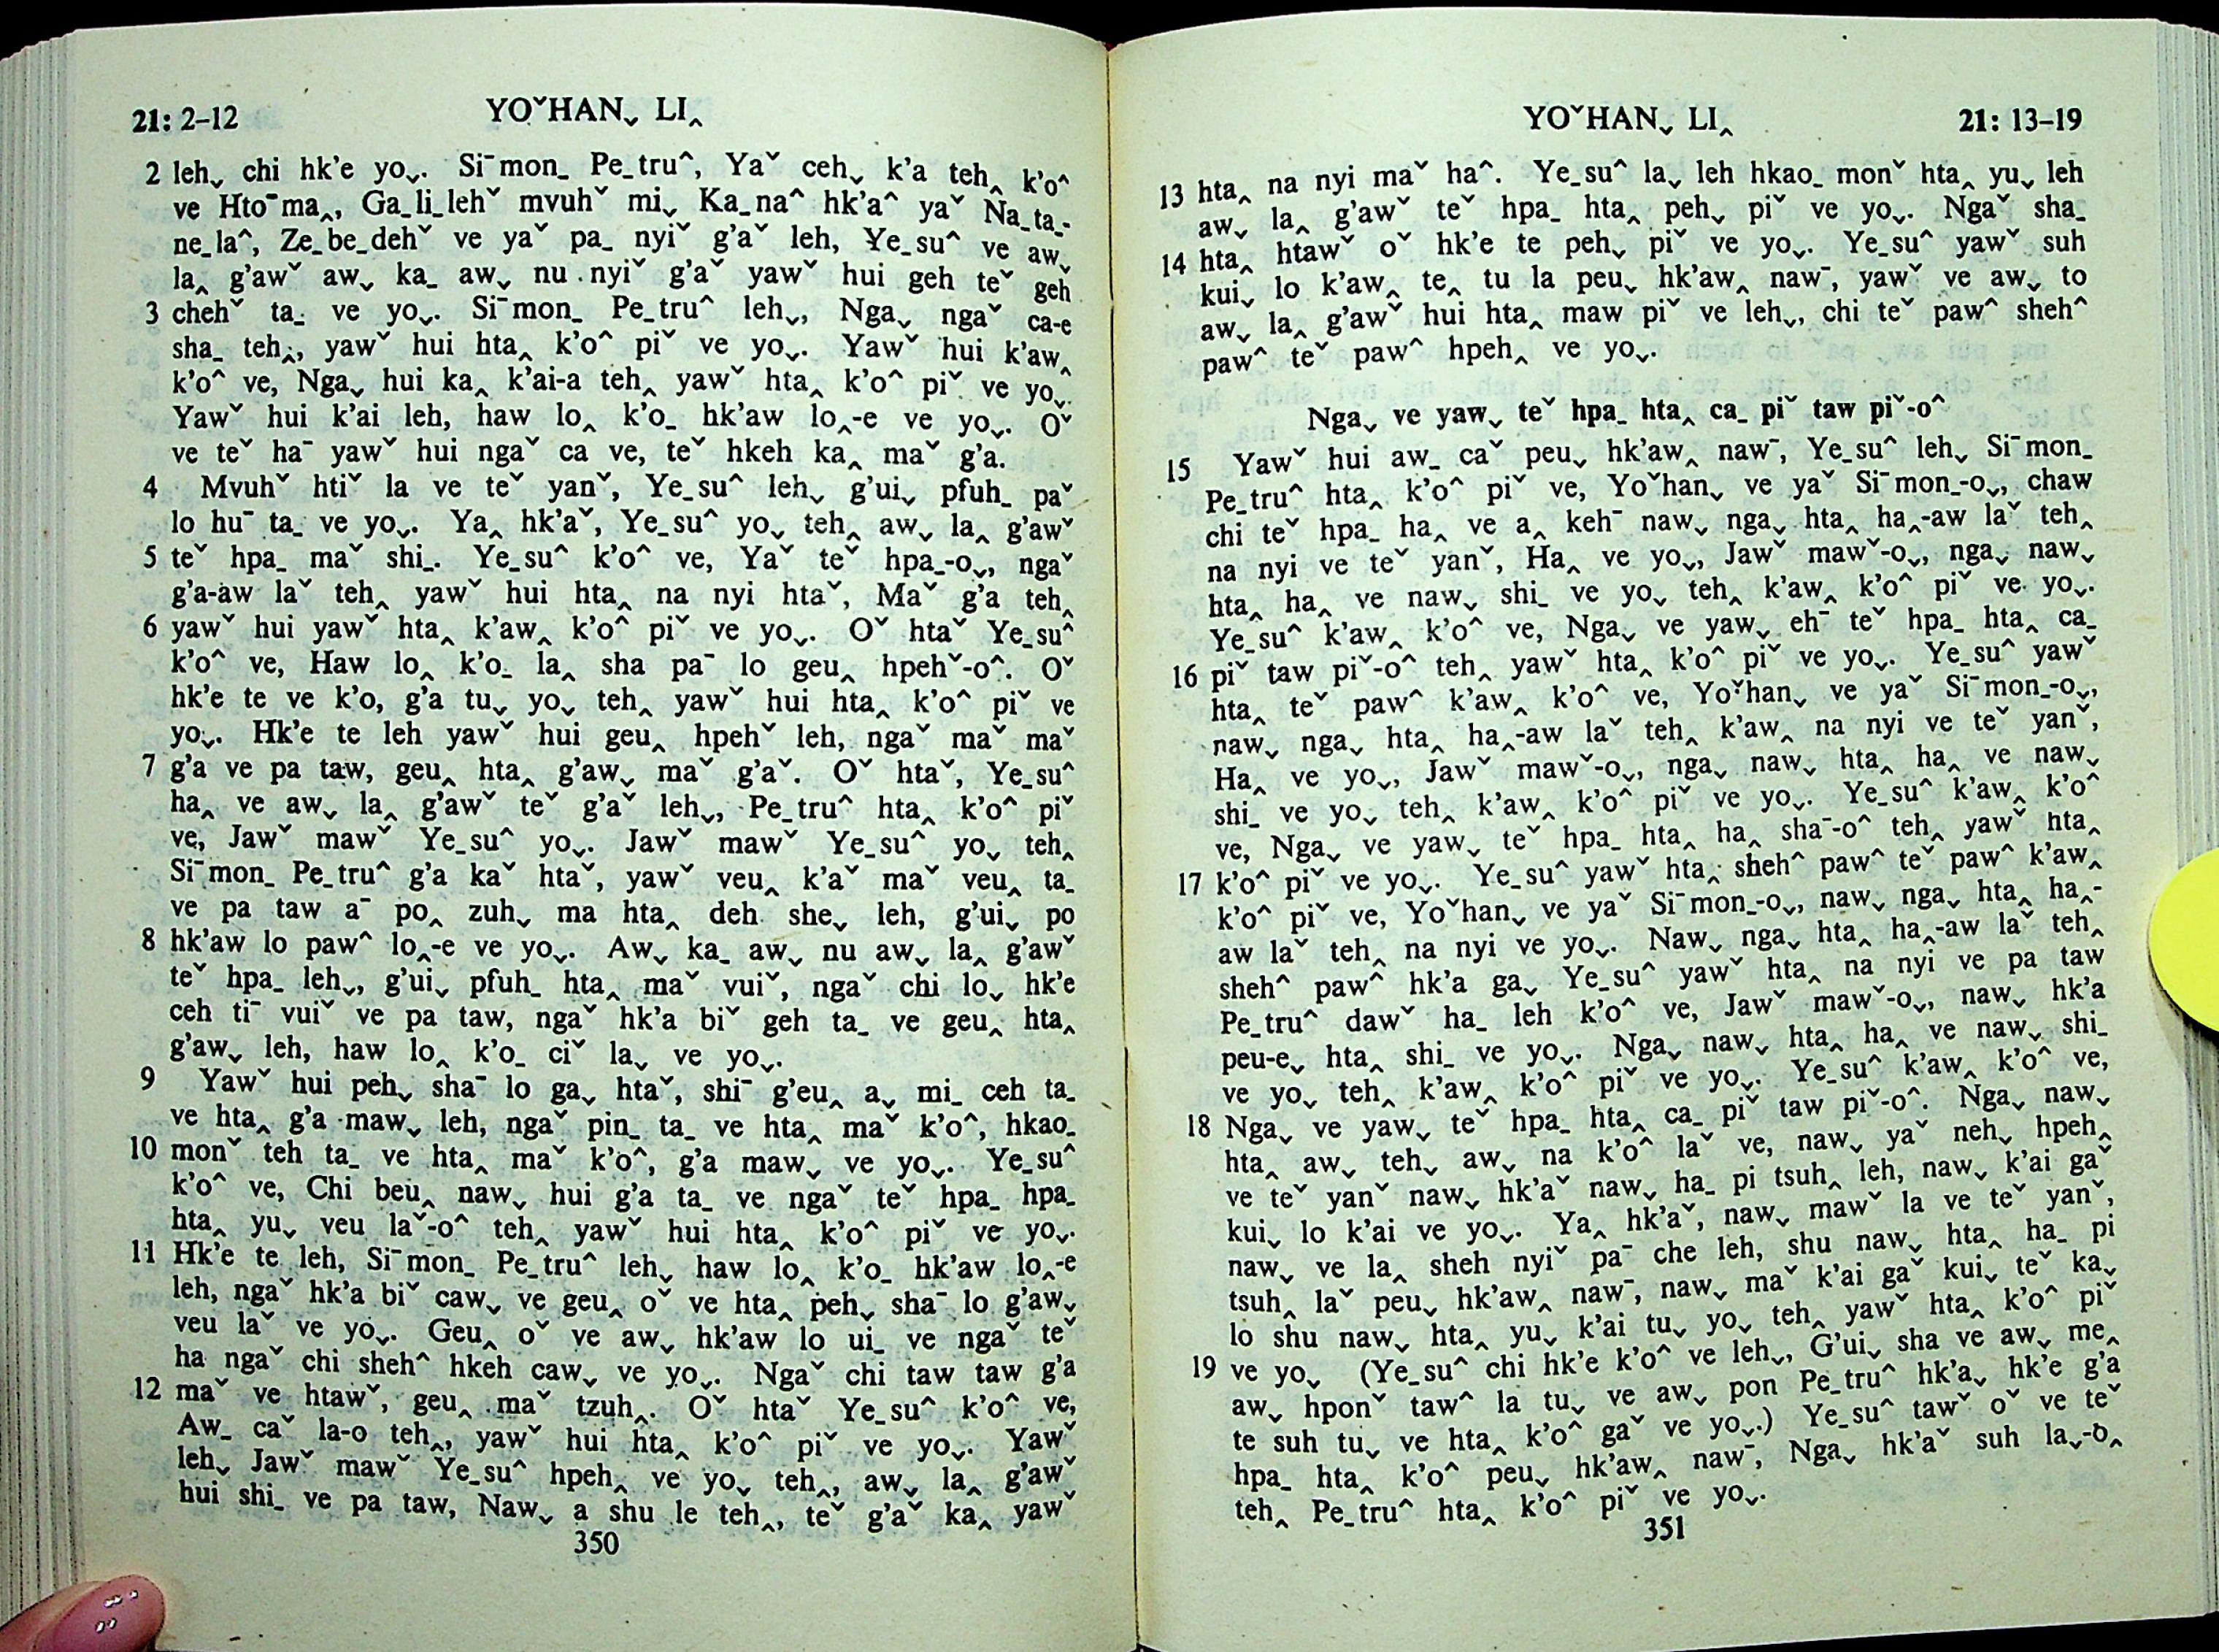 21: 2–12 YOˇHANˬ LI‸
2 lehˬ chi hk'e yoˬ. Siˉmon_ Pe_truˆ, Yaˇ cehˬ k'a teh‸ k'oˆ
ve Htoˉma‸, Ga_li_lehˇ mvuhˇ miˬ Ka_naˆ hk'aˆ yaˇ Na_ta_-
ne_laˆ, Ze_be_dehˇ ve yaˇ pa_ nyiˇ g'aˇ leh, Ye_suˆ ve awˬ
la‸ g'awˇ awˬ ka_ awˬ nu nyiˇ g'aˇ yawˇ hui geh teˇ geh
3 chehˇ ta_ ve yoˬ. Siˉmon_ Pe_truˆ lehˬ, Ngaˬ ngaˇ ca-e
sha_ teh‸, yawˇ hui hta‸ k'oˆ piˇ ve yoˬ. Yawˇ hui k'aw‸
k'oˆ ve, Ngaˬ hui ka‸ k'ai-a teh‸ yawˇ hta‸ k'oˆ piˇ ve yoˬ.
Yawˇ hui k'ai leh, haw lo‸ k'o_ hk'aw lo‸-e ve yoˬ. Oˇ
ve teˇ haˉ yawˇ hui ngaˇ ca ve, teˇ hkeh ka‸ maˇ g'a.
4 Mvuhˇ htiˇ la ve teˇ yanˇ, Ye_suˆ lehˬ g'uiˬ pfuh_ paˇ
lo huˉ ta_ ve yoˬ. Ya‸ hk'aˇ, Ye_suˆ yoˬ teh‸ awˬ la‸ g'awˇ
5 teˇ hpa_ maˇ shi_. Ye_suˆ k'oˆ ve, Yaˇ teˇ hpa_-oˬ, ngaˇ
g'a-aw laˇ teh‸ yawˇ hui hta‸ na nyi htaˇ, Maˇ g'a teh‸
6 yawˇ hui yawˇ hta‸ k'aw‸ k'oˆ piˇ ve yoˬ. Oˇ htaˇ Ye_suˆ
k'oˆ ve, Haw lo‸ k'o_ la‸ sha paˉ lo geu‸ hpehˇ-oˆ. Oˇ
hk'e te ve k'o, g'a tuˬ yoˬ teh‸ yawˇ hui hta‸ k'oˆ piˇ ve
yoˬ. Hk'e te leh yawˇ hui geu‸ hpehˇ leh, ngaˇ maˇ maˇ
7 g'a ve pa taw, geu‸ hta‸ g'awˬ maˇ g'aˇ. Oˇ htaˇ, Ye_suˆ
ha‸ ve awˬ la‸ g'awˇ teˇ g'aˇ lehˬ, Pe_truˆ hta‸ k'oˆ piˇ
ve, Jawˇ mawˇ Ye_suˆ yoˬ. Jawˇ mawˇ Ye_suˆ yoˬ teh‸
Siˉmon_ Pe_truˆ g'a kaˇ htaˇ, yawˇ veu‸ k'aˇ maˇ veu‸ ta_
ve pa taw aˉ po‸ zuhˬ ma hta‸ deh sheˬ leh, g'uiˬ po
8 hk'aw lo pawˆ lo‸-e ve yoˬ. Awˬ ka_ awˬ nu awˬ la‸ g'awˇ
teˇ hpa_ lehˬ, g'uiˬ pfuh_ hta‸ maˇ vuiˇ, ngaˇ chi loˬ hk'e
ceh tiˉ vuiˇ ve pa taw, ngaˇ hk'a biˇ geh ta_ ve geu‸ hta‸
g'awˬ leh, haw lo‸ k'o_ ciˇ laˬ ve yoˬ.
9 Yawˇ hui pehˬ shaˉ lo gaˬ htaˇ, shiˉ g'eu‸ aˬ mi_ ceh ta_
ve hta‸ g'a mawˬ leh, ngaˇ pin_ ta_ ve hta‸ maˇ k'oˆ, hkao_
10 monˇ teh ta_ ve hta‸ maˇ k'oˆ, g'a mawˬ ve yoˬ. Ye_suˆ
k'oˆ ve, Chi beu‸ nawˬ hui g'a ta_ ve ngaˇ teˇ hpa_ hpa_
hta‸ yuˬ veu laˇ-oˆ teh‸ yawˇ hui hta‸ k'oˆ piˇ ve yoˬ.
11 Hk'e te leh, Siˉmon_ Pe_truˆ lehˬ haw lo‸ k'o_ hk'aw lo‸-e
leh, ngaˇ hk'a biˇ cawˬ ve geu‸ oˇ ve hta‸ pehˬ shaˉ lo g'awˬ
veu laˇ ve yoˬ. Geu‸ oˇ ve awˬ hk'aw lo ui_ ve ngaˇ teˇ
ha ngaˇ chi shehˆ hkeh cawˬ ve yoˬ. Ngaˇ chi taw taw g'a
12 maˇ ve htawˇ, geu‸ maˇ tzuh‸. Oˇ htaˇ Ye_suˆ k'oˆ ve,
Aw_ caˇ la-o teh‸, yawˇ hui hta‸ k'oˆ piˇ ve yoˬ. Yawˇ
lehˬ Jawˇ mawˇ Ye_suˆ hpeh‸ ve yoˬ teh‸, awˬ la‸ g'awˇ
hui shi_ ve pa taw, Nawˬ a shu le teh‸, teˇ g'aˇ ka‸ yawˇ
350
YOˇHANˬ LI‸ 21: 13–19
13 hta‸ na nyi maˇ haˆ. Ye_suˆ laˬ leh hkao_ monˇ hta‸ yuˬ leh
awˬ la‸ g'awˇ teˇ hpa_ hta‸ pehˬ piˇ ve yoˬ. Ngaˇ sha_
14 hta‸ htawˇ oˇ hk'e te pehˬ piˇ ve yoˬ. Ye_suˆ yawˇ suh
kuiˬ lo k'aw‸ te‸ tu la peuˬ hk'aw‸ nawˉ, yawˇ ve awˬ to
awˬ la‸ g'awˇ hui hta‸ maw piˇ ve lehˬ, chi teˇ pawˆ shehˆ
pawˆ teˇ pawˆ hpeh‸ ve yoˬ.
Ngaˬ ve yawˬ teˇ hpa_ hta‸ ca_ piˇ taw piˇ-oˆ
15 Yawˇ hui aw_ caˇ peuˬ hk'aw‸ nawˉ, Ye_suˆ lehˬ Siˉmon_
Pe_truˆ hta‸ k'oˆ piˇ ve, Yoˇhanˬ ve yaˇ Siˉmon_-oˬ, chaw
chi teˇ hpa_ ha‸ ve a‸ kehˉ nawˬ ngaˬ hta‸ ha‸-aw laˇ teh‸
na nyi ve teˇ yanˇ, Ha‸ ve yoˬ, Jawˇ mawˇ-oˬ, ngaˬ nawˬ
hta‸ ha‸ ve nawˬ shi_ ve yoˬ teh‸ k'aw‸ k'oˆ piˇ ve yoˬ.
Ye_suˆ k'aw‸ k'oˆ ve, Ngaˬ ve yawˬ ehˉ teˇ hpa_ hta‸ ca_
16 piˇ taw piˇ-oˆ teh‸ yawˇ hta‸ k'oˆ piˇ ve yoˬ. Ye_suˆ yawˇ
hta‸ teˇ pawˆ k'aw‸ k'oˆ ve, Yoˇhanˬ ve yaˇ Siˉmon_-oˬ,
nawˬ ngaˬ hta‸ ha‸-aw laˇ teh‸ k'aw‸ na nyi ve teˇ yanˇ,
Ha‸ ve yoˬ, Jawˇ mawˇ-oˬ, ngaˬ nawˬ hta‸ ha‸ ve nawˬ
shi_ ve yoˬ teh‸ k'aw‸ k'oˆ piˇ ve yoˬ. Ye_suˆ k'aw‸ k'oˆ
ve, Ngaˬ ve yawˬ teˇ hpa_ hta‸ ha‸ shaˉ-oˆ teh‸ yawˇ hta‸
17 k'oˆ piˇ ve yoˬ. Ye_suˆ yawˇ hta‸ shehˆ pawˆ teˇ pawˆ k'aw‸
k'oˆ piˇ ve, Yoˇhanˬ ve yaˇ Siˉmon_-oˬ, nawˬ ngaˬ hta‸ ha‸-
aw laˇ teh‸ na nyi ve yoˬ. Nawˬ ngaˬ hta‸ ha‸-aw laˇ teh‸
shehˆ pawˆ hk'a gaˬ Ye_suˆ yawˇ hta‸ na nyi ve pa taw
Pe_truˆ dawˇ ha_ leh k'oˆ ve, Jawˇ mawˇ-oˬ, nawˬ hk'a
peu-eˬ hta‸ shi_ ve yoˬ. Ngaˬ nawˬ hta‸ ha‸ ve nawˬ shi_
ve yoˬ teh‸ k'aw‸ k'oˆ piˇ ve yoˬ. Ye_suˆ k'aw‸ k'oˆ ve,
18 Ngaˬ ve yawˬ teˇ hpa_ hta‸ ca_ piˇ taw piˇ-oˆ. Ngaˬ nawˬ
hta‸ awˬ tehˬ awˬ na k'oˆ laˇ ve, nawˬ yaˇ nehˬ hpeh‸
ve teˇ yanˇ nawˬ hk'aˇ nawˬ ha_ pi tsuh‸ leh, nawˬ k'ai gaˇ
kuiˬ lo k'ai ve yoˬ. Ya‸ hk'aˇ, nawˬ mawˇ la ve teˇ yanˇ,
nawˬ ve la‸ sheh nyiˇ paˉ che leh, shu nawˬ hta‸ ha_ pi
tsuh‸ laˇ peuˬ hk'aw‸ nawˉ, nawˬ maˇ k'ai gaˇ kuiˬ teˇ kaˬ
lo shu nawˬ hta‸ yuˬ k'ai tuˬ yoˬ teh‸ yawˇ hta‸ k'oˆ piˇ
19 ve yoˬ (Ye_suˆ chi hk'e k'oˆ ve lehˬ, G'uiˬ sha ve awˬ me‸
awˬ hponˇ tawˆ la tuˬ ve awˬ pon Pe_truˆ hk'aˬ hk'e g'a
te suh tuˬ ve hta‸ k'oˆ gaˇ ve yoˬ.) Ye_suˆ tawˇ oˇ ve teˇ
hpa_ hta‸ k'oˆ peuˬ hk'aw‸ nawˉ, Ngaˬ hk'aˇ suh laˬ-o‸
teh‸ Pe_truˆ hta‸ k'oˆ piˇ ve yoˬ.
351